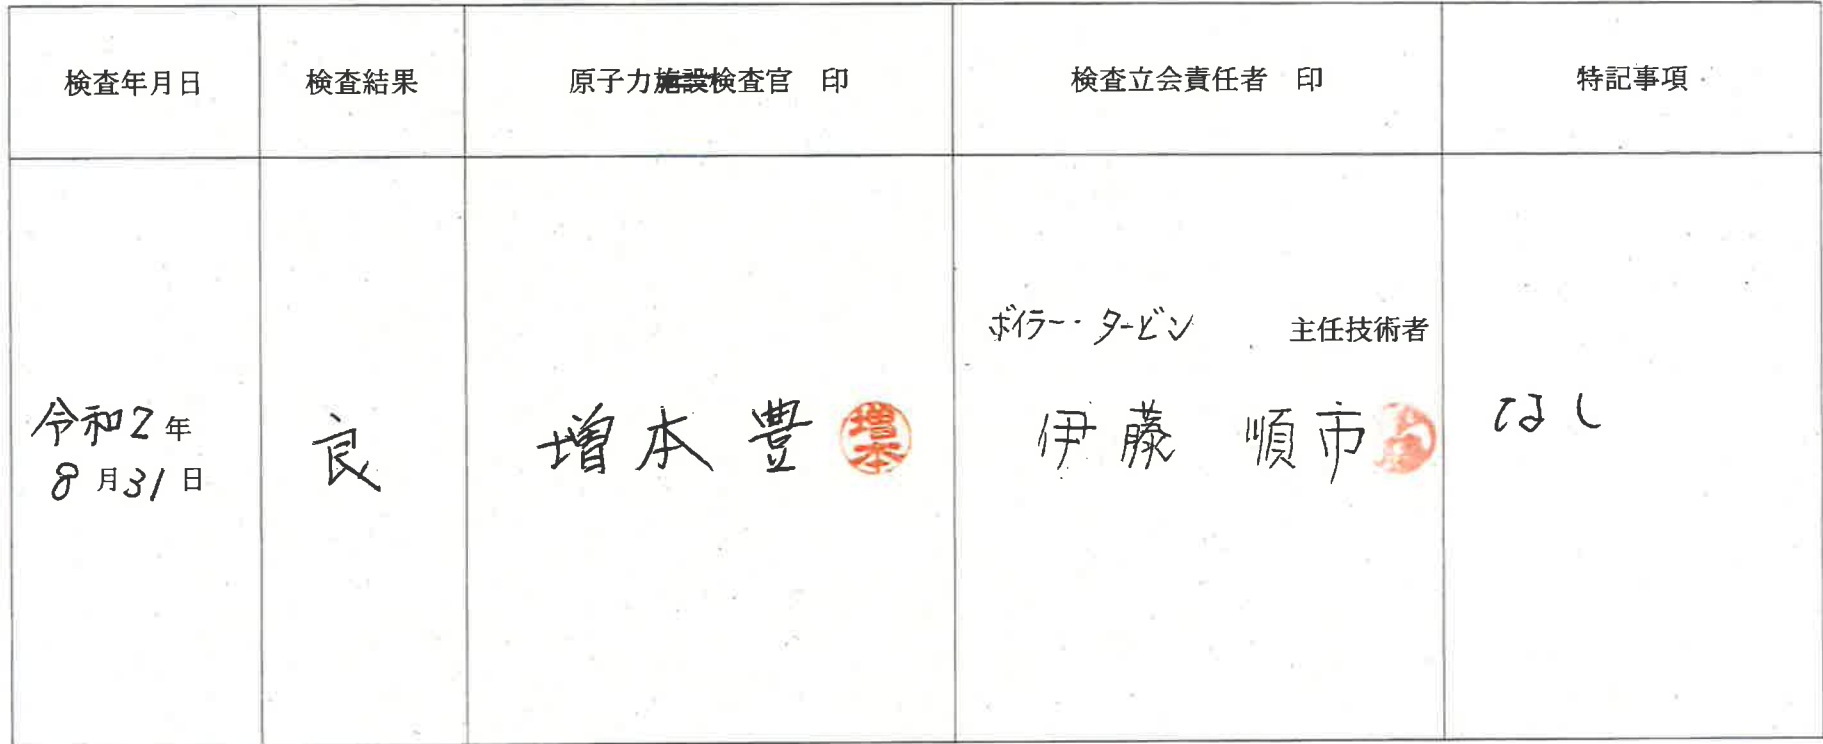 検査年月日
検査結果
原子力施設検査官 印
検査立会責任者 印
特記事項
令和2年
8月31日
良
増本 豊
増本
ボイラー・タービン 主任技術者
伊藤 順市
なし